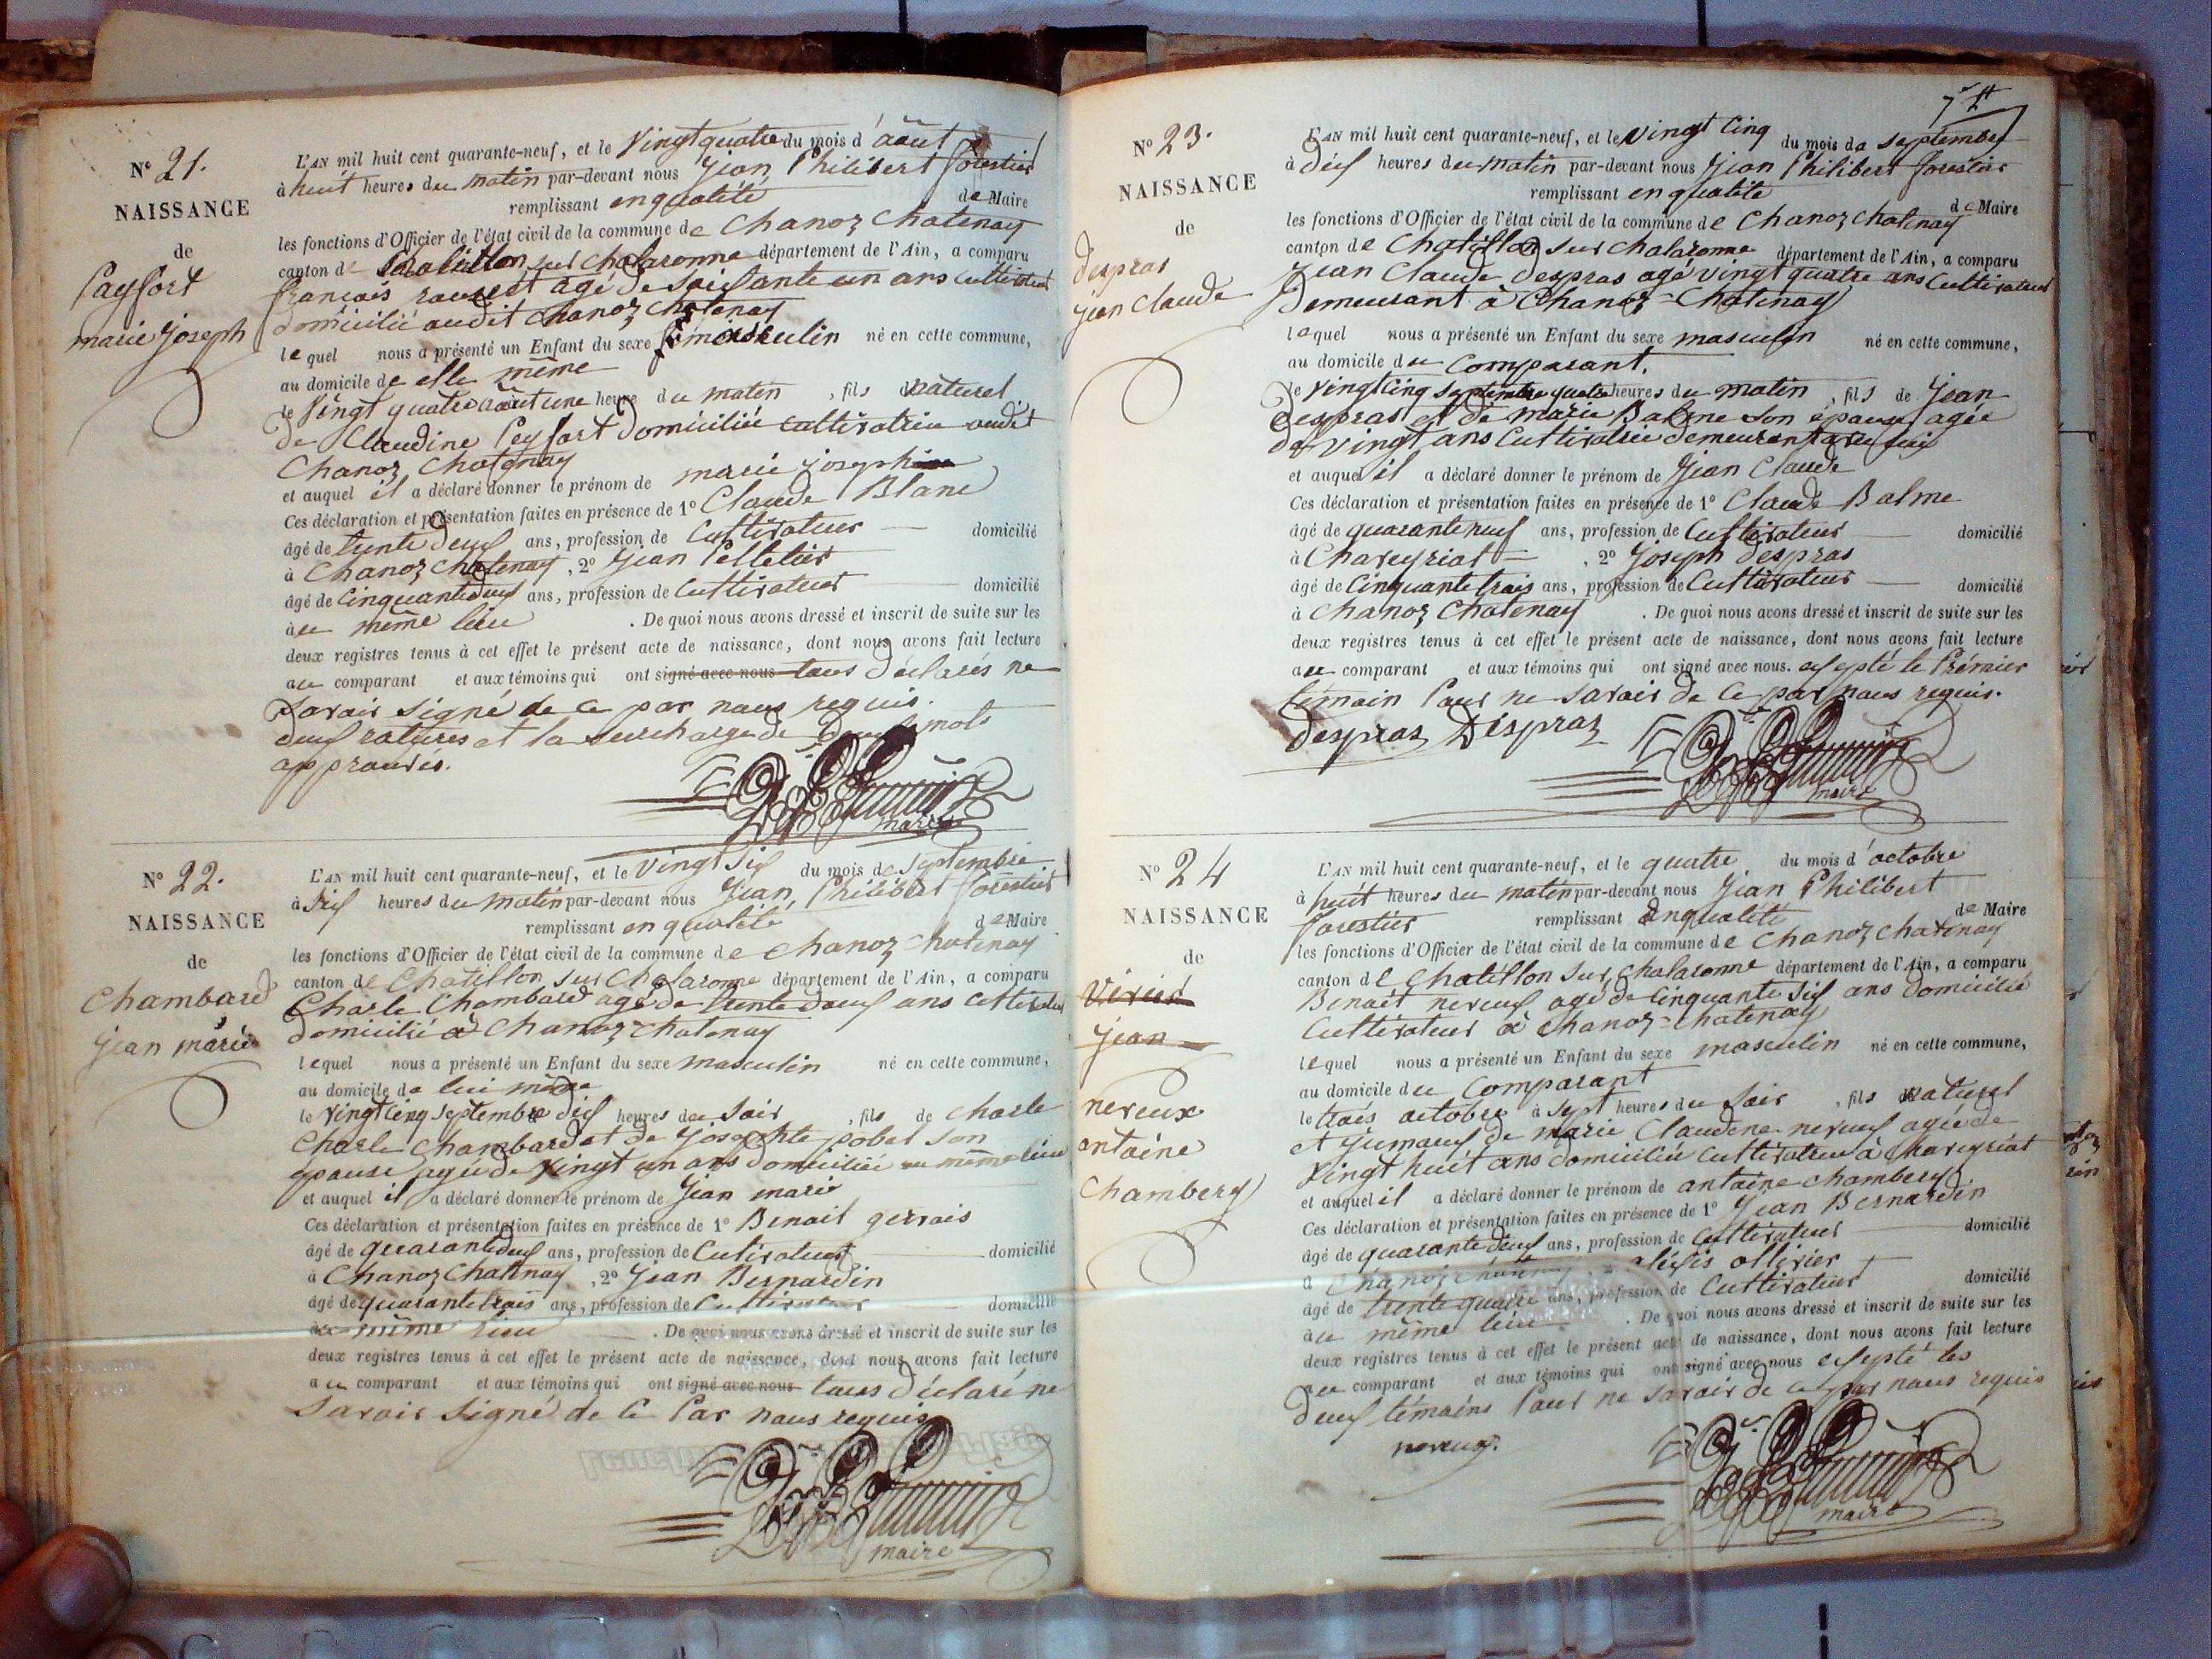 N° 21.
NAISSANCE
de
Payfort
marie joseph
L'AN mil huit cent quarante-neuf, et le Vingt quatre du mois d'août
à huit heures du matin par-devant nous Jean Philibert forestier
remplissant en qualité de Maire
les fonctions d'Officier de l'état civil de la commune de Chanoz Chatenay
canton de Chatillon sur chalaronne département de l'Ain, a comparu
francois agé de soixante un ans cultivateur
domicilié audit chanoz chatenay
lequel nous a présenté un Enfant du sexe masculin né en cette commune,
au domicile de elle même
le Vingt quatre août une heure du matin , fils naturel
de Claudine Peyfort domiciliée cultivatrice audit
Chanoz Chatenay
et auquel il a déclaré donner le prénom de marie joseph
Ces déclaration et présentation faites en présence de 1° Claude Blanc
âgé de trente deux ans, profession de Cultivateur domicilié
à Chanoz chatenay , 2° Jean Pelletier
âgé de Cinquante deux ans, profession de Cultivateur domicilié
au même lieu . De quoi nous avons dressé et inscrit de suite sur les
deux registres tenus à cet effet le présent acte de naissance, dont nous avons fait lecture
au comparant et aux témoins qui ont signé avec nous tous déclarés ne
savoir signé de ce par nous requis.
deux ratures et la surcharge de deux mots
approuvés.
maire
N° 22.
NAISSANCE
de
Chambard
jean marie
L'AN mil huit cent quarante-neuf, et le Vingt six du mois de Septembre
à dix heures du matin par-devant nous Jean Philibert forestier
remplissant en qualité de Maire
les fonctions d'Officier de l'état civil de la commune de chanoz Chatenay
canton de Chatillon sur Chalaronne département de l'Ain, a comparu
Charle Chambard agé de trente deux ans cultivateur
domicilié à Chanoz chatenay
lequel nous a présenté un Enfant du sexe masculin né en cette commune,
au domicile de lui même
le vingt cinq septembre dix heures du soir , fils de Charle
Charle Chambard et de Josephte pobel son
epouse agée de vingt un ans domiciliée au même lieu
et auquel il a déclaré donner le prénom de Jean marie
Ces déclaration et présentation faites en présence de 1° Benoit gervais
âgé de quarante deux ans, profession de Cultivateur domicilié
à Chanoz Chatenay , 2° Jean Bernardin
âgé de quarante trois ans, profession de Cultivateur domicilié
au même lieu . De quoi nous avons dressé et inscrit de suite sur les
deux registres tenus à cet effet le présent acte de naissance, dont nous avons fait lecture
au comparant et aux témoins qui ont signé avec nous tous déclaré ne
savoir signé de ce Par nous requis
maire
N° 23.
NAISSANCE
de
despras
jean claude
L'AN mil huit cent quarante-neuf, et le vingt cinq du mois de septembre
à dix heures du matin par-devant nous Jean Philibert forestier
remplissant en qualité de Maire
les fonctions d'Officier de l'état civil de la commune de Chanoz chatenay
canton de Chatillon sur chalaronne département de l'Ain, a comparu
Jean Claude despras agé vingt quatre ans cultivateur
demeurant à Chanoz-Chatenay
lequel nous a présenté un Enfant du sexe masculin né en cette commune,
au domicile du comparant.
le vingt cinq septembre quatre heures du matin , fils de Jean
despras et de marie Balme son épouse agée
de vingt ans cultivatrice demeurant
et auquel il a déclaré donner le prénom de Jean Claude
Ces déclaration et présentation faites en présence de 1° Claude Balme
âgé de quarante neuf ans, profession de Cultivateur domicilié
à Chaveyriat , 2° Joseph despras
âgé de Cinquante trois ans, profession de Cultivateur domicilié
à Chanoz Chatenay . De quoi nous avons dressé et inscrit de suite sur les
deux registres tenus à cet effet le présent acte de naissance, dont nous avons fait lecture
au comparant et aux témoins qui ont signé avec nous. exsepté le Prémier
témoin Pour ne savoir de ce par nous requis.
despras Despraz
maire
N° 24
NAISSANCE
de
Jean
nereux
antoine
Chambery
L'AN mil huit cent quarante-neuf, et le quatre du mois d'octobre
à huit heures du matin par-devant nous Jean Philibert
forestier remplissant en qualité de Maire
les fonctions d'Officier de l'état civil de la commune de Chanoz chatenay
canton de Chatillon sur chalaronne département de l'Ain, a comparu
Benoit nereux agé de cinquante six ans domicilié
Cultivateur à chanoz-chatenay
lequel nous a présenté un Enfant du sexe masculin né en cette commune,
au domicile du comparant
le trois octobre à sept heures du soir , fils naturel
et jumeaux de marie Claudine nereux agée de
Vingt huit ans domiciliée cultivatrice à chaveyriat
et auquel il a déclaré donner le prénom de antoine chambery
Ces déclaration et présentation faites en présence de 1° Jean Bernardin
âgé de quarante deux ans, profession de Cultivateur domicilié
à Chanoz chatenay , 2° alexis ollivier
âgé de trente quatre ans, profession de Cultivateur domicilié
au même lieu . De quoi nous avons dressé et inscrit de suite sur les
deux registres tenus à cet effet le présent acte de naissance, dont nous avons fait lecture
au comparant et aux témoins qui ont signé avec nous exsepté les
deux témoins Pour ne savoir de ce par nous requis
nereux.
maire